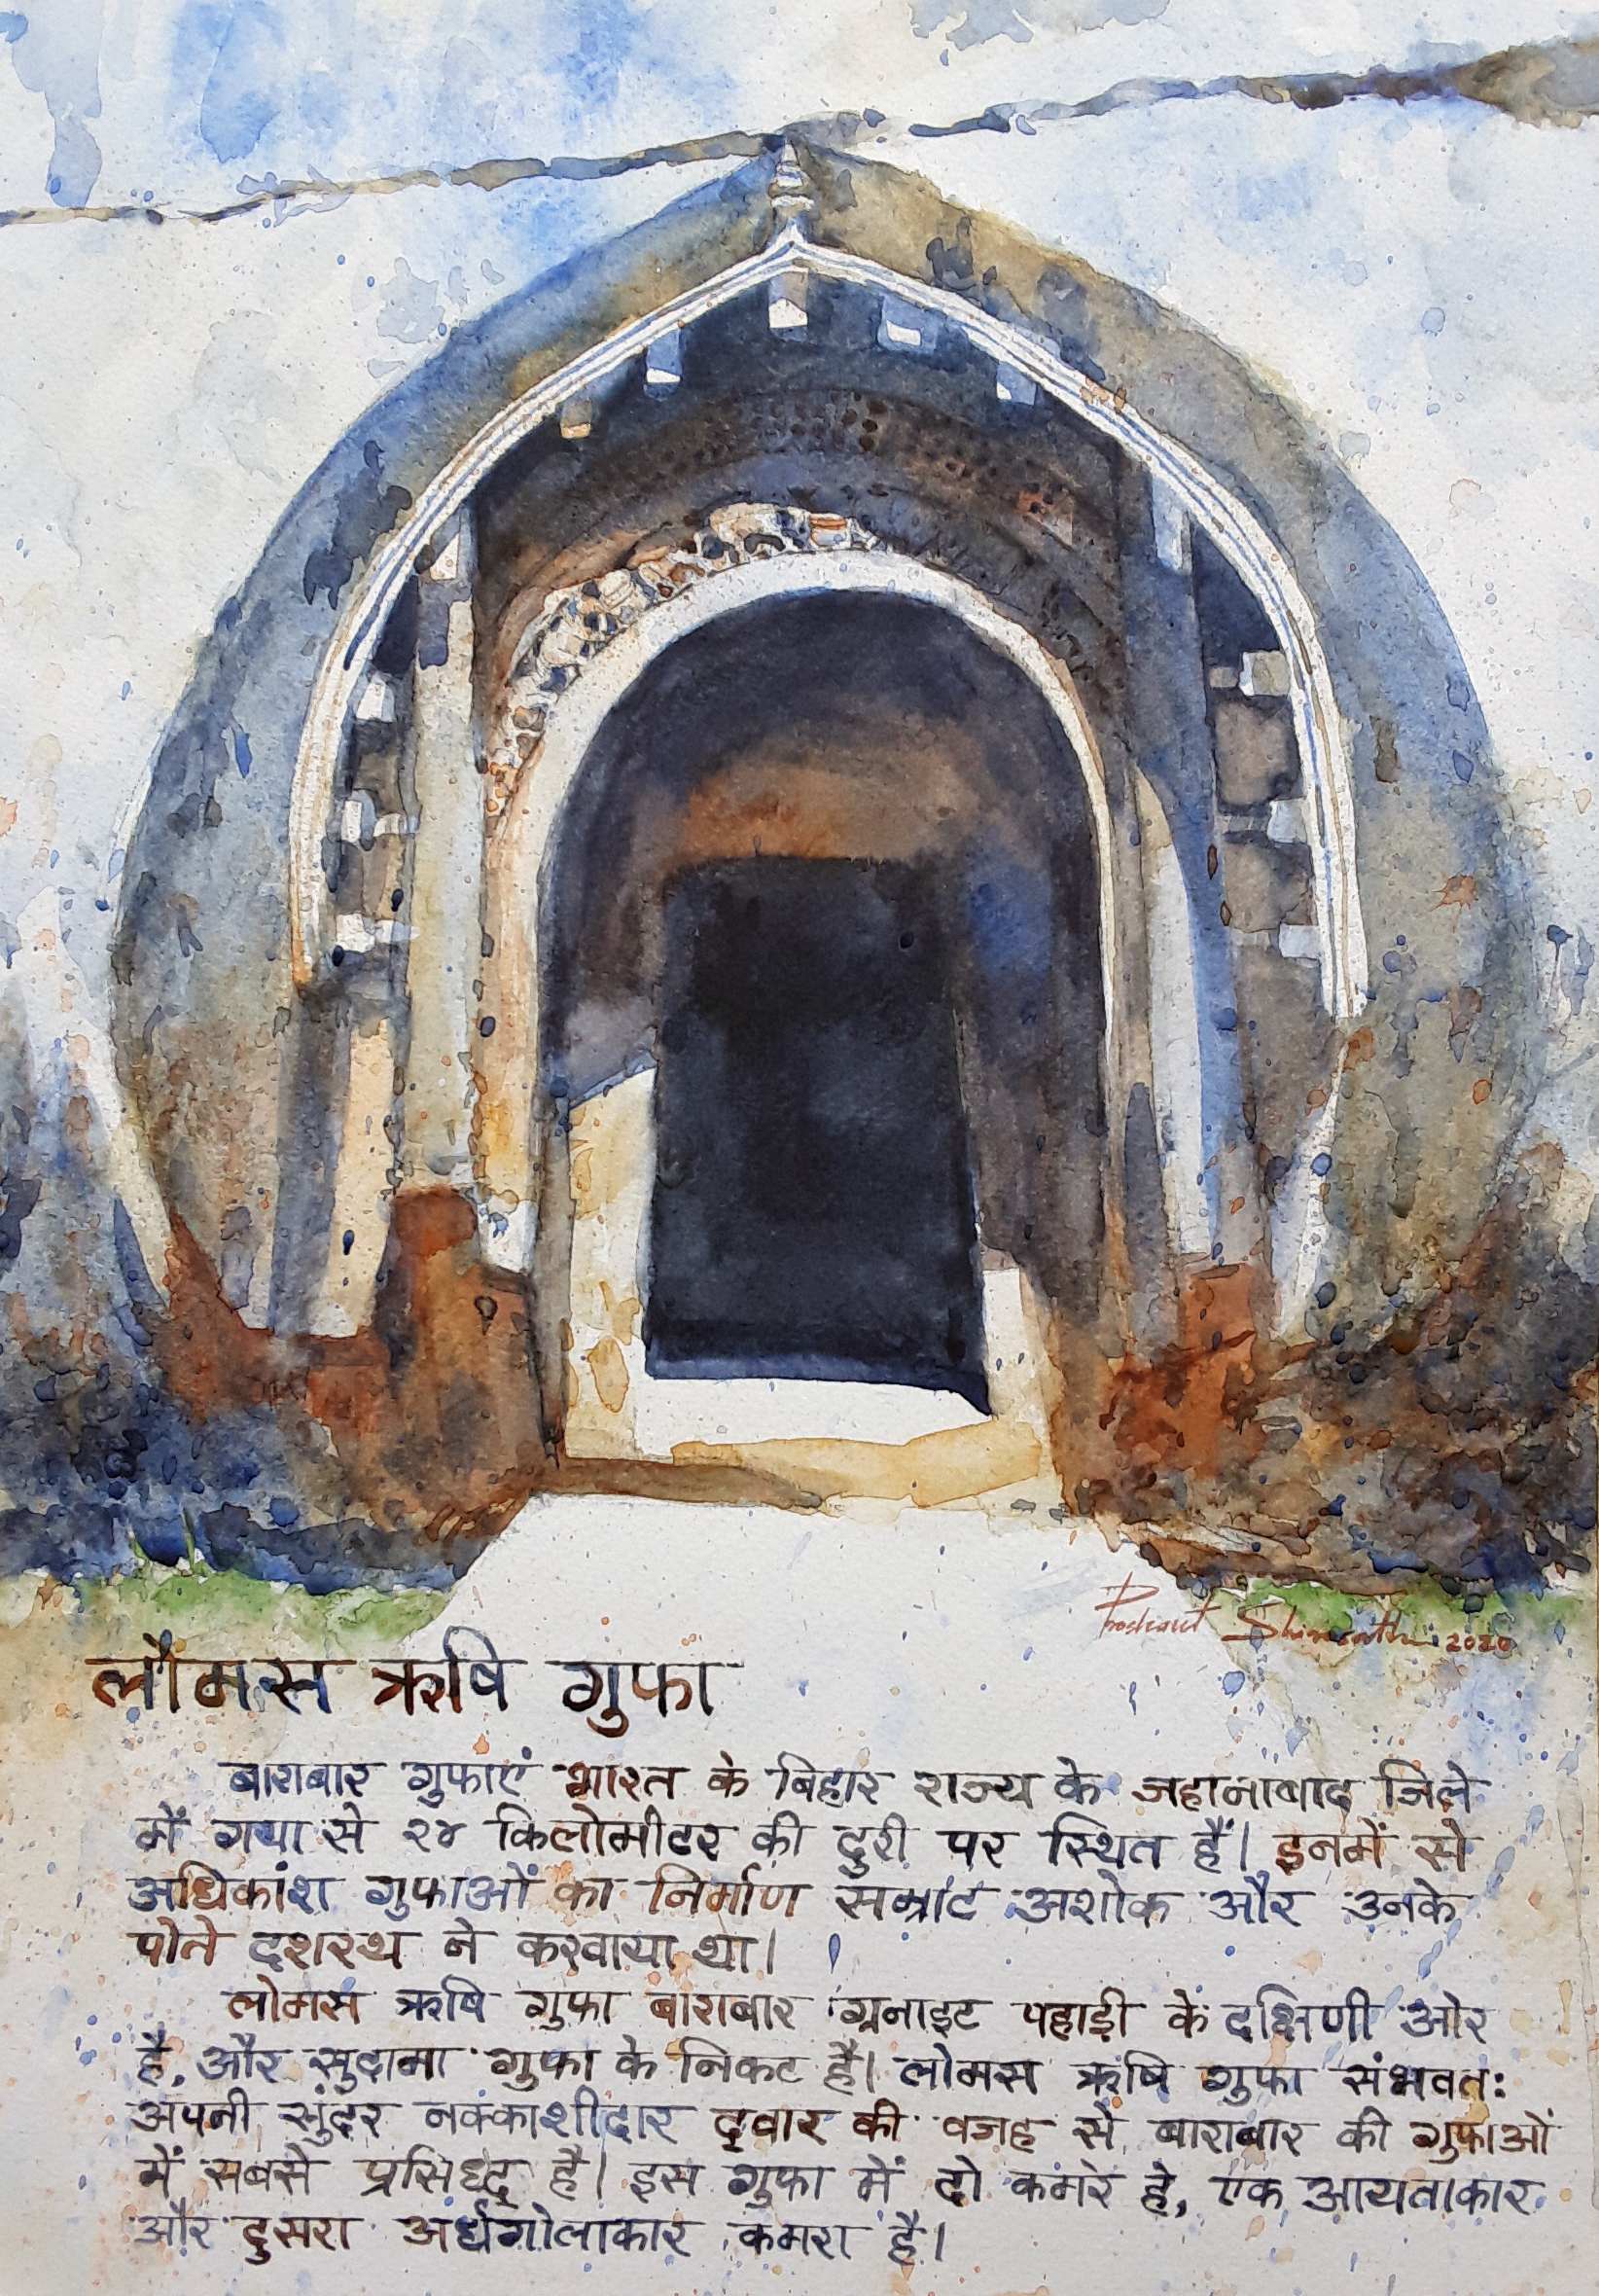 Prashant Shivnath 2020
लोमस ऋषि गुफा
बाराबार गुफाएं भारत के बिहार राज्य के जहानाबाद जिले
में गया से २४ किलोमीटर की दुरी पर स्थित हैं। इनमें से
अधिकांश गुफाओं का निर्माण सम्राट अशोक और उनके
पोते दशरथ ने करवाया था।
लोमस ऋषि गुफा बाराबार ग्रनाइट पहाड़ी के दक्षिणी ओर
है, और सुदामा गुफा के निकट है। लोमस ऋषि गुफा संभवतः
अपनी सुंदर नक्काशीदार द्वार की वजह से बाराबार की गुफाओं
में सबसे प्रसिध्द है। इस गुफा में दो कमरे है, एक आयताकार
और दुसरा अर्धगोलाकार कमरा है।